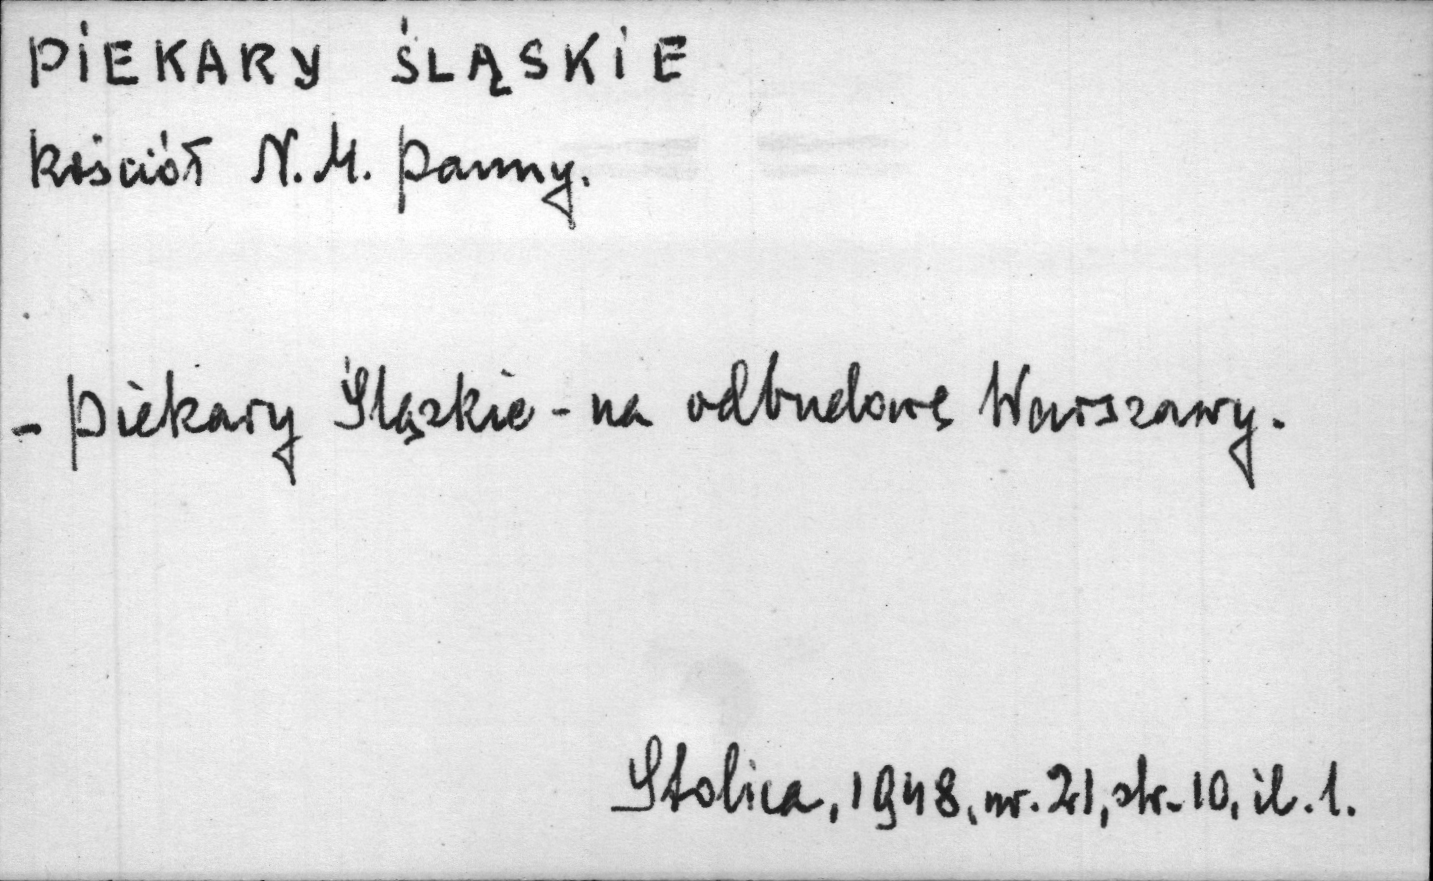 PIEKARY ŚLĄSKIE
Kościół N.M. Panny.
- Piekary Śląskie - na odbudowę Warszawy.
Stolica, 1948, nr. 21, str. 10, il. 1.